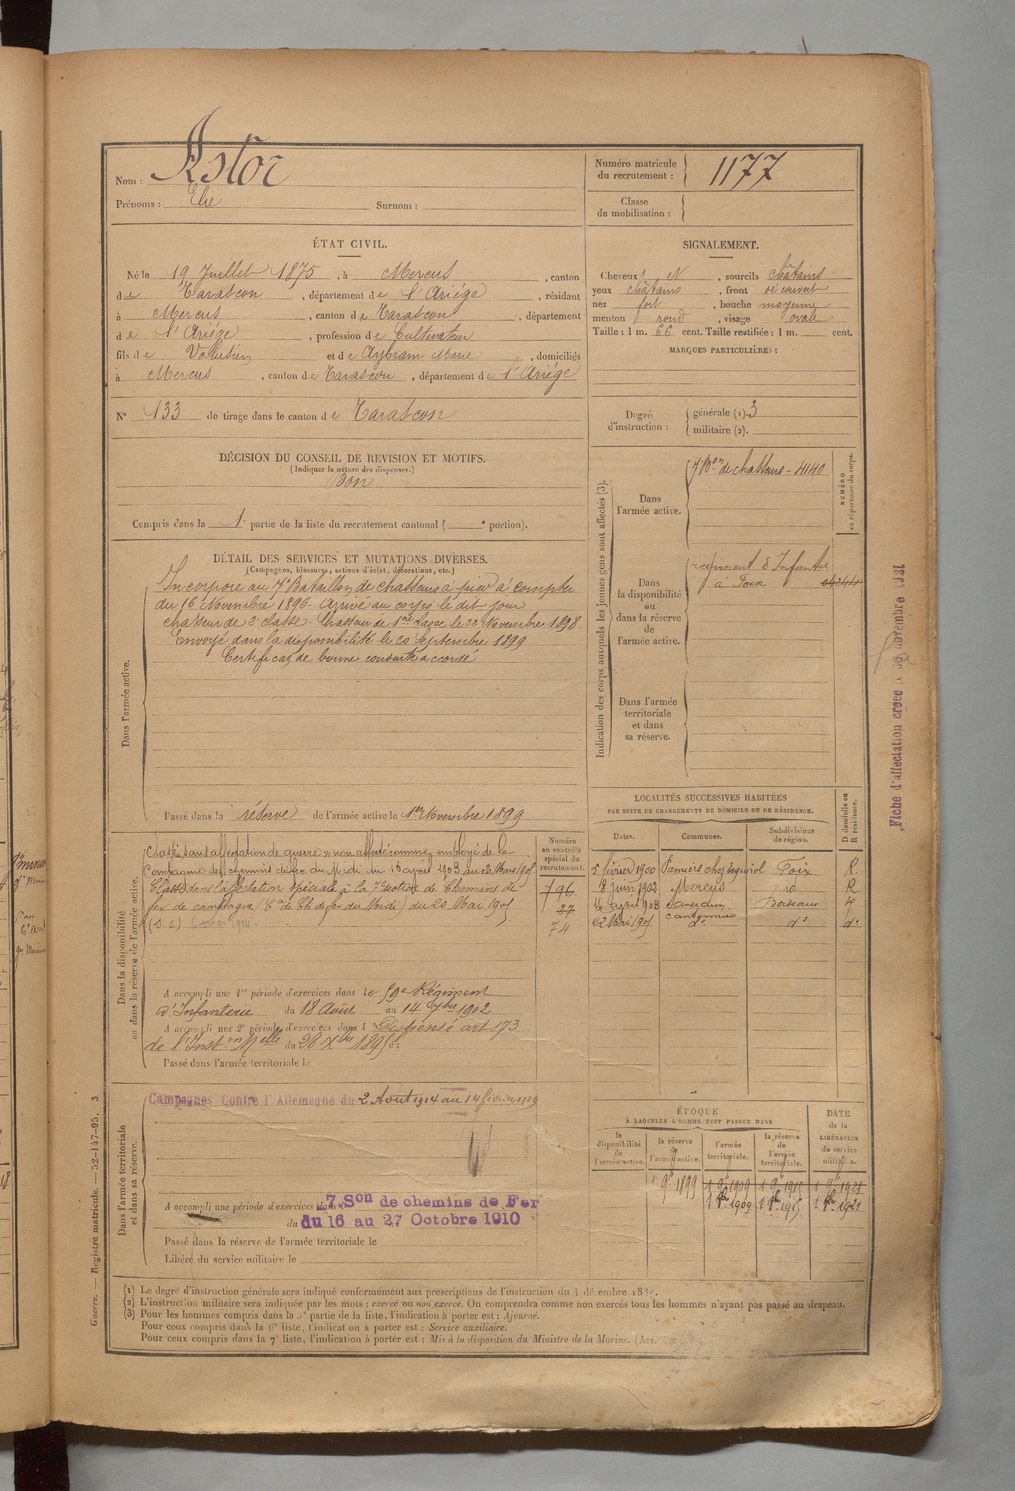 Nom : Astor
Prénoms : Elie Surnom :
Numéro matricule du recrutement : 1177
Classe de mobilisation :
ÉTAT CIVIL.
Né le 19 Juillet 1875, à Mercus, canton
de Tarascon, département de l'Ariége, résidant
à Mercus, canton de Tarascon, département
de l'Ariége, profession de Cultivateur
fils de Volusien et de Aybram Marie, domiciliés
à Mercus, canton de Tarascon, département de l'Ariége
N° 133 de tirage dans le canton de Tarascon
SIGNALEMENT.
Cheveux N, sourcils châtains
yeux châtains, front découvert
nez fort, bouche moyenne
menton rond, visage ovale
Taille : 1 m. 66 cent. Taille rectifiée : 1 m. cent.
MARQUES PARTICULIÈRES :
Degré d'instruction : générale (1). 3
militaire (2).
DÉCISION DU CONSEIL DE REVISION ET MOTIFS.
(Indiquer la nature des dispenses.)
Bon
Compris dans la 1e partie de la liste du recrutement cantonal ( e portion).
DÉTAIL DES SERVICES ET MUTATIONS DIVERSES.
(Campagnes, blessures, actions d'éclat, décorations, etc.)
Dans l'armée active.
Incorporé au 7e Bataillon de chasseurs à pied à compter
du 16 Novembre 1896. Arrivé au corps le dit jour
chasseur de 2e classe. Chasseur de 1ère classe le 22 Novembre 1898.
Envoyé dans la disponibilité le 20 Septembre 1899
Certificat de bonne conduite accordé
Passé dans la réserve de l'armée active le 1er Novembre 1899
Indication des corps auxquels les jeunes gens sont affectés (3).
NUMÉRO au répertoire du corps.
Dans l'armée active.
7 Bon de chasseurs - 4140
Dans la disponibilité ou dans la réserve de l'armée active.
régiment d'Infantie
à Foix
Dans l'armée territoriale et dans sa réserve.
LOCALITÉS SUCCESSIVES HABITÉES
PAR SUITE DE CHANGEMENTS DE DOMICILE OU DE RÉSIDENCE.
Dates. Communes. Subdivisions de région. D domicile ou R résidence.
5 février 1900 Pamiers chez Foix R.
8 Juin 1902 Mercus id R
Avril 1903 Bordeaux R
22 Mai 1905 cantonnier do do
Dans la disponibilité ou dans la réserve de l'armée active.
Numéro au contrôle spécial du recrutement.
796
37
74
Classé sans affectation de guerre "non affecté" comme employé de la
Compagnie des chemins de fer du Midi du 18 avril 1903 au 20 Mars 1905
Classé dans l'affectation spéciale à la 7e section de Chemins de
fer de campagne (Cie de Ch de fer du Midi) du 20 Mai 1905
(S.C)
A accompli une 1re période d'exercices dans le 59e Régiment
d'Infanterie du 18 Août au 14 7bre 1902
A accompli une 2e période d'exercices dans l Dispensé art 173
de l'Inston Melle du 28 Xbre 1895
Passé dans l'armée territoriale le
Dans l'armée territoriale et dans sa réserve.
Campagnes Contre l'Allemagne du 2 Août 1914 au 14 février 1919
A accompli une période d'exercices dans 7. Son de chemins de Fer
du 16 au 27 Octobre 1910
Passé dans la réserve de l'armée territoriale le
Libéré du service militaire le
ÉPOQUE
À LAQUELLE L'HOMME DOIT PASSER DANS
la disponibilité de l'armée active.
la réserve de l'armée active.
l'armée territoriale.
la réserve de l'armée territoriale.
DATE de la LIBÉRATION du service militaire.
1 9e 1899 1 9e 1909 1 9e 1915 1 9e 1921
1 8bre 1909 1 8bre 1915 1 8bre 1921
Fiche d'affectation créée le novembre 1921
Guerre. — Registre matricule. — 52-147-95. 3
(1) Le degré d'instruction générale sera indiqué conformément aux prescriptions de l'instruction du
(2) L'instruction militaire sera indiquée par les mots : exercé ou non exercé. On comprendra comme non exercés tous les hommes n'ayant pas passé au drapeau.
(3) Pour les hommes compris dans la 5e partie de la liste, l'indication à porter est : Ajourné.
Pour ceux compris dans la 6e liste, l'indication à porter est : Service auxiliaire.
Pour ceux compris dans la 7e liste, l'indication à porter est : Mis à la disposition du Ministre de la Marine. (Art.